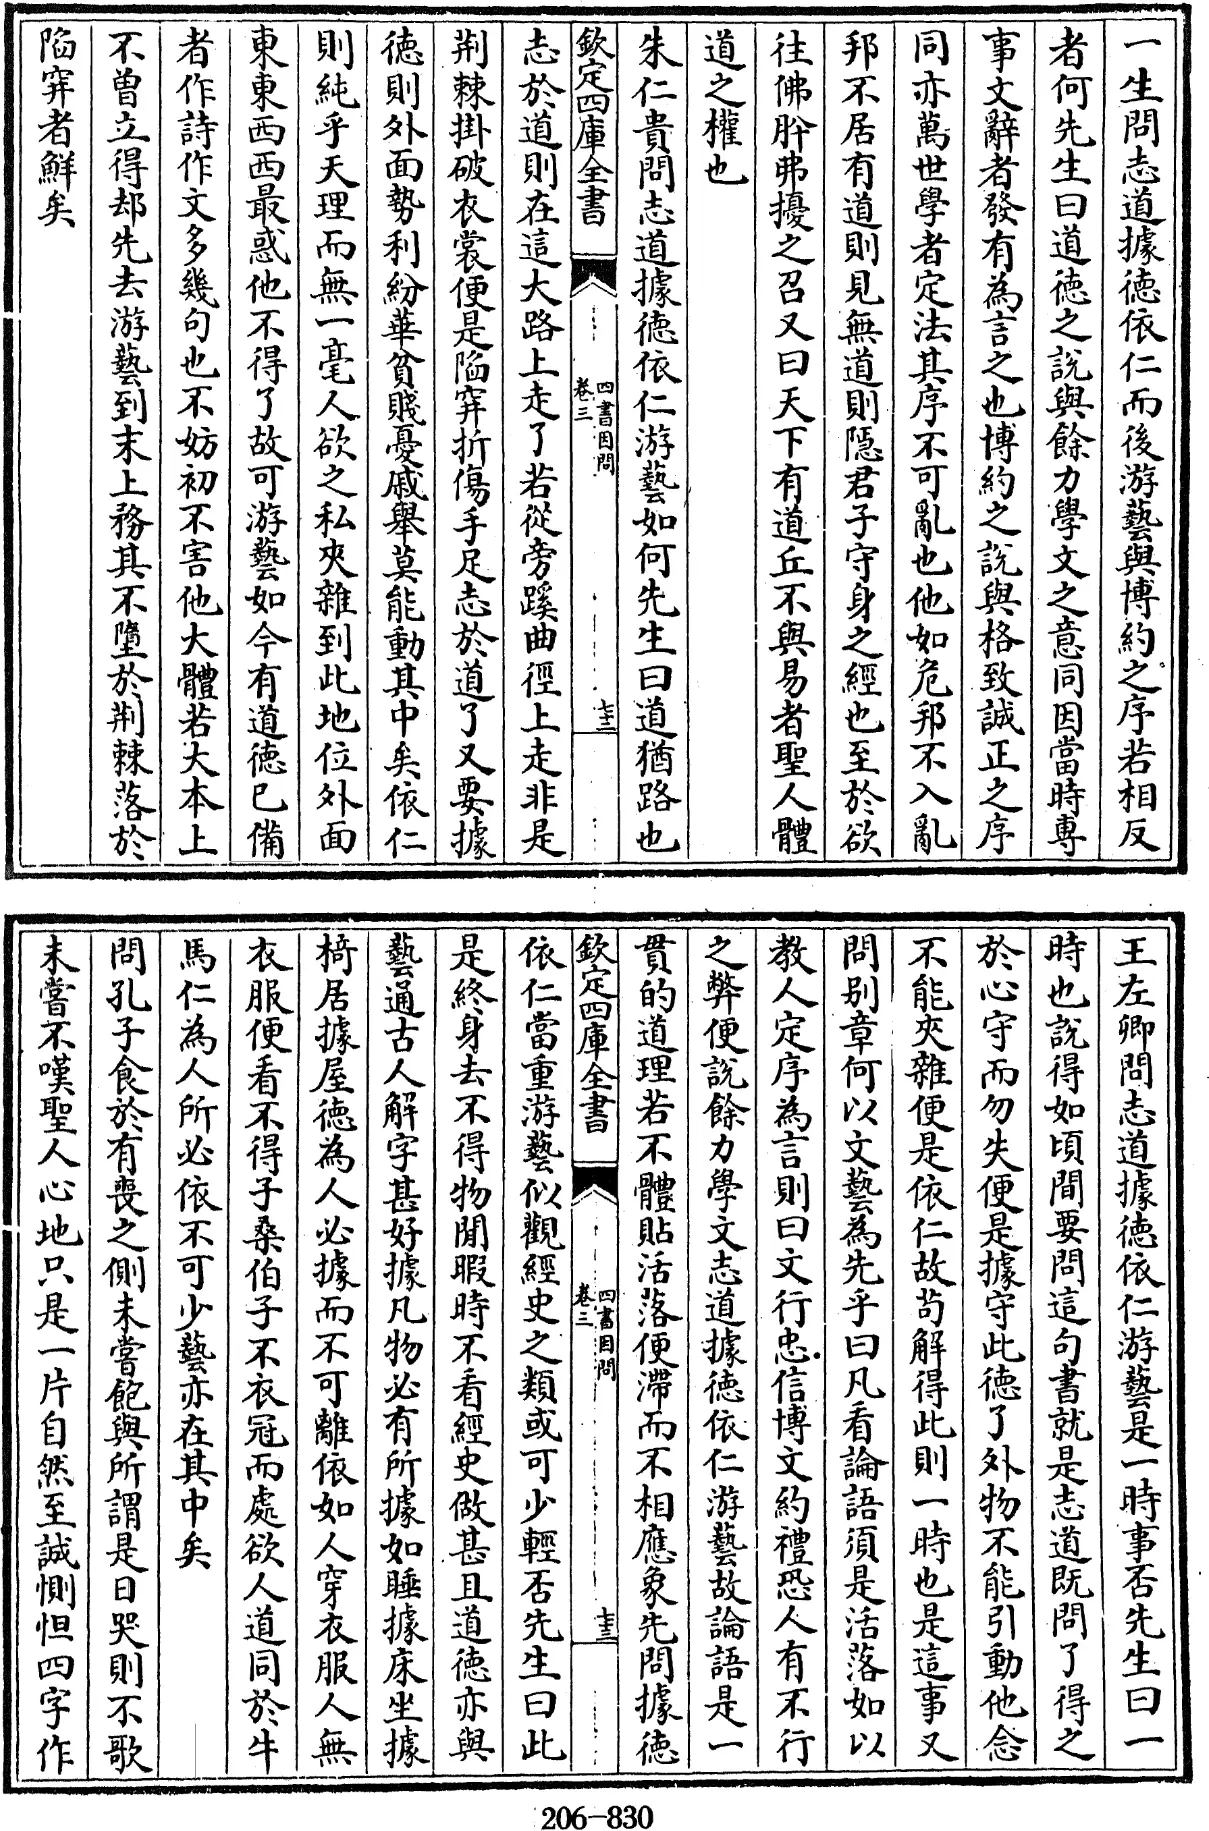 一生問志道據德依仁而後游藝與博約之序若相反
者何先生曰道德之説與餘力學文之意同因當時專
事文辭者發有為言之也博約之説與格致誠正之序
同亦萬世學者定法其序不可亂也他如危邦不入亂
邦不居有道則見無道則隠君子守身之經也至於欲
往佛肸弗擾之召又曰天下有道丘不與易者聖人體
道之權也
朱仁貴問志道據德依仁游藝如何先生曰道猶路也
欽定四庫全書
四書因問
卷三
志於道則在這大路上走了若從旁蹊曲徑上走非是
荆棘掛破衣裳便是陷穽折傷手足志於道了又要據
德則外面勢利紛華貧賤憂戚舉莫能動其中矣依仁
則純乎天理而無一毫人欲之私夾雜到此地位外面
東東西西最惑他不得了故可游藝如今有道德已備
者作詩作文多幾句也不妨初不害他大體若大本上
不曽立得却先去游藝到末上務其不墮於荆棘落於
陷穽者鮮矣
王左卿問志道據德依仁游藝是一時事否先生曰一
時也説得如頃間要問這句書就是志道既問了得之
於心守而勿失便是據守此德了外物不能引動他念
不能夾雜便是依仁故苟解得此則一時也是這事又
問别章何以文藝為先乎曰凡看論語須是活落如以
教人定序為言則曰文行忠信博文約禮恐人有不行
之弊便説餘力學文志道據德依仁游藝故論語是一
貫的道理若不體貼活落便滯而不相應象先問據德
欽定四庫全書
四書因問
卷三
依仁當重游藝似觀經史之類或可少輕否先生曰此
是終身去不得物閒暇時不看經史做甚且道德亦與
藝通古人解字甚好據凡物必有所據如睡據床坐據
椅居據屋德為人必據而不可離依如人穿衣服人無
衣服便看不得子桑伯子不衣冠而處欲人道同於牛
馬仁為人所必依不可少藝亦在其中矣
問孔子食於有喪之側未嘗飽與所謂是日哭則不歌
未嘗不嘆聖人心地只是一片自然至誠惻怛四字作
206-830